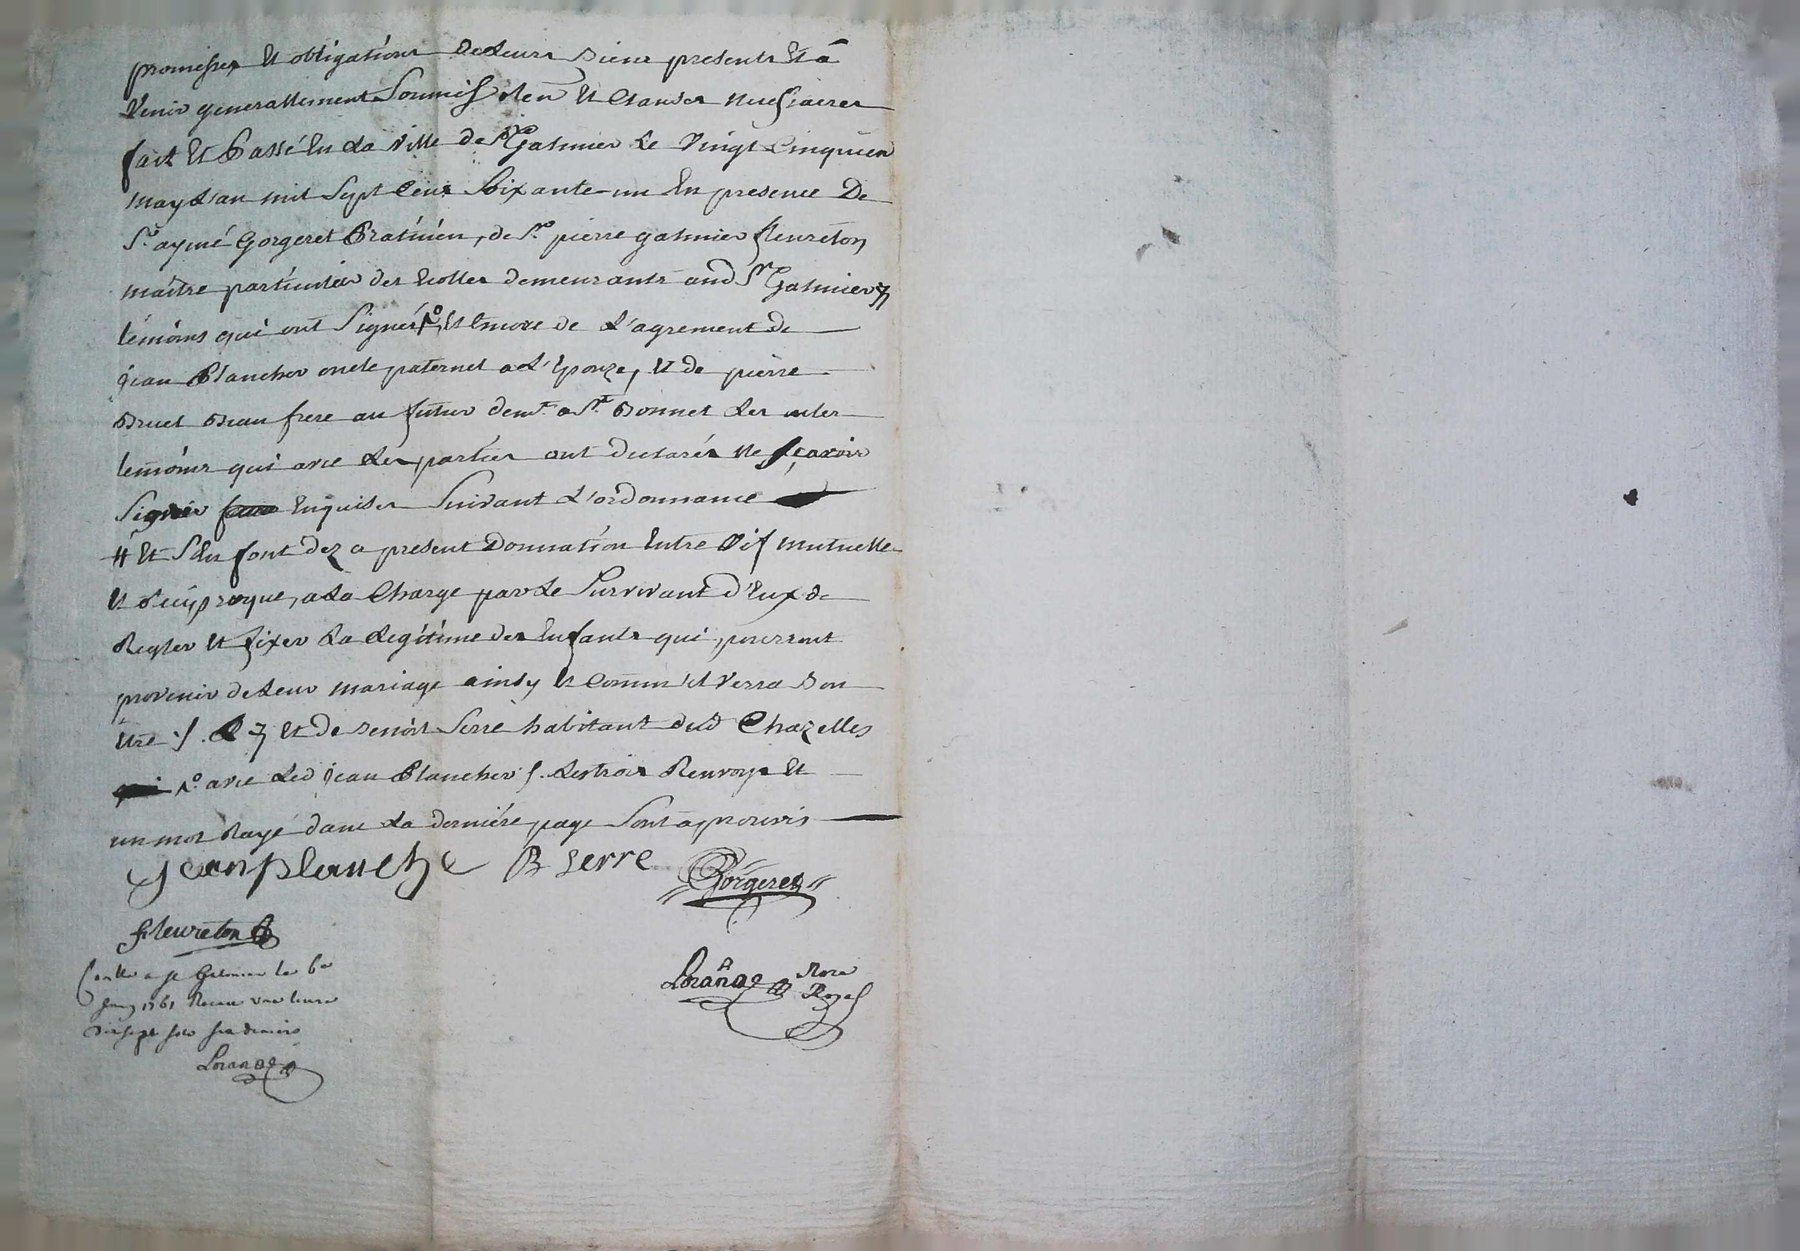 promesses et obligations de leurs biens presents et a
venir generallement Soumis Ren et Clauses necessaires
fait et Passé en la ville de St Galmier le vingt cinquien
may L'an mil Sept Cens Soixante-un En presence De
Sr. aymé Gorgeret Praticien, de Sr. pierre galmier fleureton
maitre particulier des Ecolles demeurants aud St Galmier
temoins qui ont Signés, Et encore de L'agrement de
jean Plancher oncle paternel a L'Epouze, et de pierre
Bruel Beau frere au futur demt. a St. Bonnet Les
temoins qui avec Les parties ont declarés ne sçavoir
Signer Enquises Suivant L'ordonnance
# Et Sen font dez a present Donnation Entre Vifs mutuelle
et Reciproque, a La Charge par Le Survivant d'Eux de
Regler et fixer La Legitime des Enfants qui pourront
provenir de Leur mariage ainsy et Comm'il verra Bon
Etre /. et de Benoit Serre habitant dud Chazelles
avec Led jean Plancher /. Les trois Renvoys et
un mot Rayé dans La derniére page Sont approuvés
jean planche B serre Gorgeret
fleureton
Lorande Nore
Royal
Conlle a St Galmier le 6e
juin 1761 Receu une livre
dixsept sols six deniers
Lorande